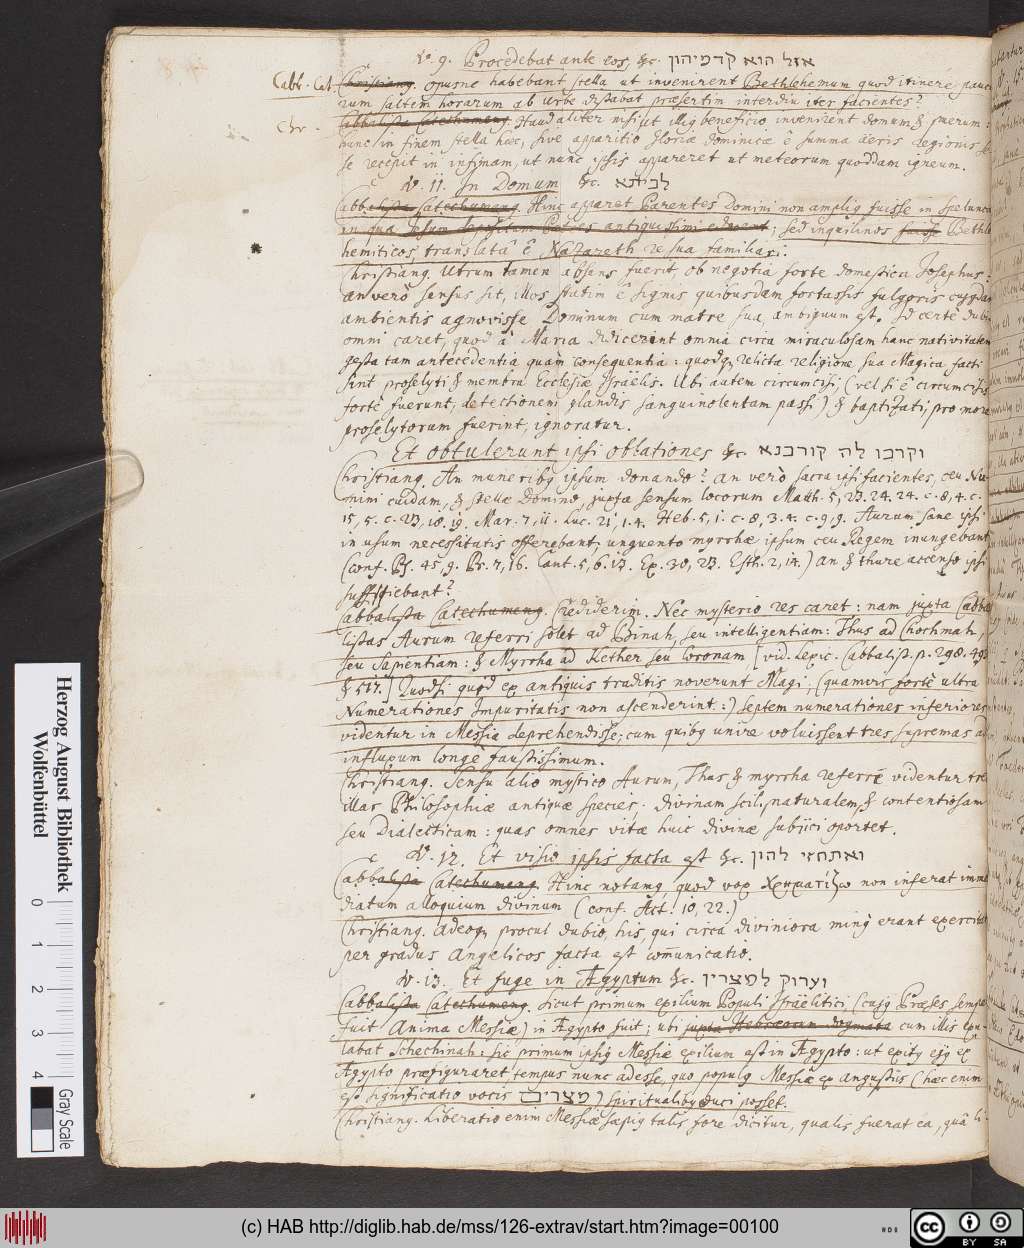 v. 9. Procedebat ante eos, &c. אזל הוא קדמיהון
Cabb. Cat. Christianq. opusne habebant stella ut invenirent Bethlehemum quod itinere pauco-
rum saltem horarum ab urbe distabat præsertim interdiu iter facientes?
Chr. Cabbalista Catechumenq. Haud aliter nisi ut illiq beneficio invenirent domum & puerum:
nunc in finem stella hæc, sive apparitio gloriæ dominicæ è summa aëris regionis se-
se recepit in infimam, ut nunc ipsis appareret ut meteorum quoddam igneum.
v. 11. In Domum &c. לביתא
Cabbalista Catechumenq. Hinc apparet Parentes Domini non ampliq fuisse in spelunca
in qua ipsum Patres antiquissimi ; sed inquilinos fuisse Bethle-
hemiticos, translatâ è Nazareth re sua familiari.
Christianq. Utrum tamen absens fuerit, ob negotia forte domestica Josephus:
an verò sensus sit, illos statim è signis quibusdam fortassis fulgoris cujusdam
ambientis agnovisse Dominum cum matre sua, ambiguum est. Id certè dubio
omni caret, quod à Maria didicerint omnia circa miraculosam hanc nativitatem
gesta tam antecedentia quàm consequentia: quodq, relicta religione sua Magica facti
sint proselyti & membra Ecclesiæ Israëlis. Ubi autem circumcisi, (vel si è circumcisis
fortè fuerunt, detectionem glandis sanguinolentam passi) & baptizati, pro more
proselytorum fuerint, ignoratur.
Et obtulerunt ipsi oblationes &c. וקרבו לה קורבנא
Christianq. An muneribq ipsum donando? an verò sacra ipsi facientes, ceu Nu-
mini cuidam, & seu Domino, juxta sensum locorum Matth. 5, 23. 24. 24. c. 8, 4. c.
15, 5. c. 23, 18. 19. Mar. 7, 11. Luc. 21, 1. 4. Heb. 5, 1. c. 8, 3. 4. c. 9, 9. Aurum sane ipsi
in usum necessitatis offerebant; unguento myrrhæ ipsum ceu Regem inungebant
(conf. Ps. 45, 9. Pr. 7, 16. Cant. 5, 6. 13. Ex. 30, 23. Esth. 2, 12.) an & thure accenso ipsi
suffitiebant?
Cabbalista Catechumenq. Crediderim. Nec mysterio res caret: nam juxta Cabba-
listas Aurum referri solet ad Binah, seu intelligentiam: Thus ad Chochmah,
seu Sapientiam: & Myrrha ad Kether seu Coronam [vid. Lexic. Cabbalist. p. 298. 493
& 517.] Quodsi quid ex antiquis traditis noverunt Magi, (quamvis fortè ultra
Numerationes Impuritatis non ascenderint:) septem numerationes inferiores
videntur in Messia deprehendisse; cum quibq unire voluissent tres supremas ad
influxum longè faustissimum.
Christianq. Sensu alio mystico Aurum, Thus & myrrha referre videntur tres
illas Philosophiæ antiquæ species: divinam scil. naturalem & contentiosam
seu Dialecticam: quas omnes vitæ huic divinæ subjici oportet.
v. 12. Et visio ipsis facta est &c. ואתחזי להון
Cabbalista Catechumenq. Hinc notamq, quod vox χρηματίζω non inferat imme-
diatum alloquium divinum (conf. Act. 10, 22.)
Christianq. Adeoq, procul dubio, his, qui circa diviniora minq erant exercitati
per gradus Angelicos facta est com̄unicatio.
v. 13. Et fuge in Ægyptum &c. וערוק למצרין
Cabbalista Catechumenq. Sicut primum exilium Populi Israëlitici, (cujq Præses semper
fuit Anima Messiæ) in Ægypto fuit; ubi juxta Hebræorum dogmata cum illis exu-
labat Schechinah: sic primum ipsiq Messiæ exilium est in Ægypto: ut exitq ejq ex
Ægypto præfiguraret, tempus nunc adesse, quo populq Messiæ ex angustiis (hæc enim
est significatio vocis מצרים) spiritualibq educi posset.
Christianq. Liberatio enim Messiæ sæpiq talis fore dicitur, qualis fuerat ea, quâ li-
Herzog August Bibliothek
Wolfenbüttel
0 1 2 3 4 Gray Scale
(c) HAB http://diglib.hab.de/mss/126-extrav/start.htm?image=00100
HAB
cc BY SA